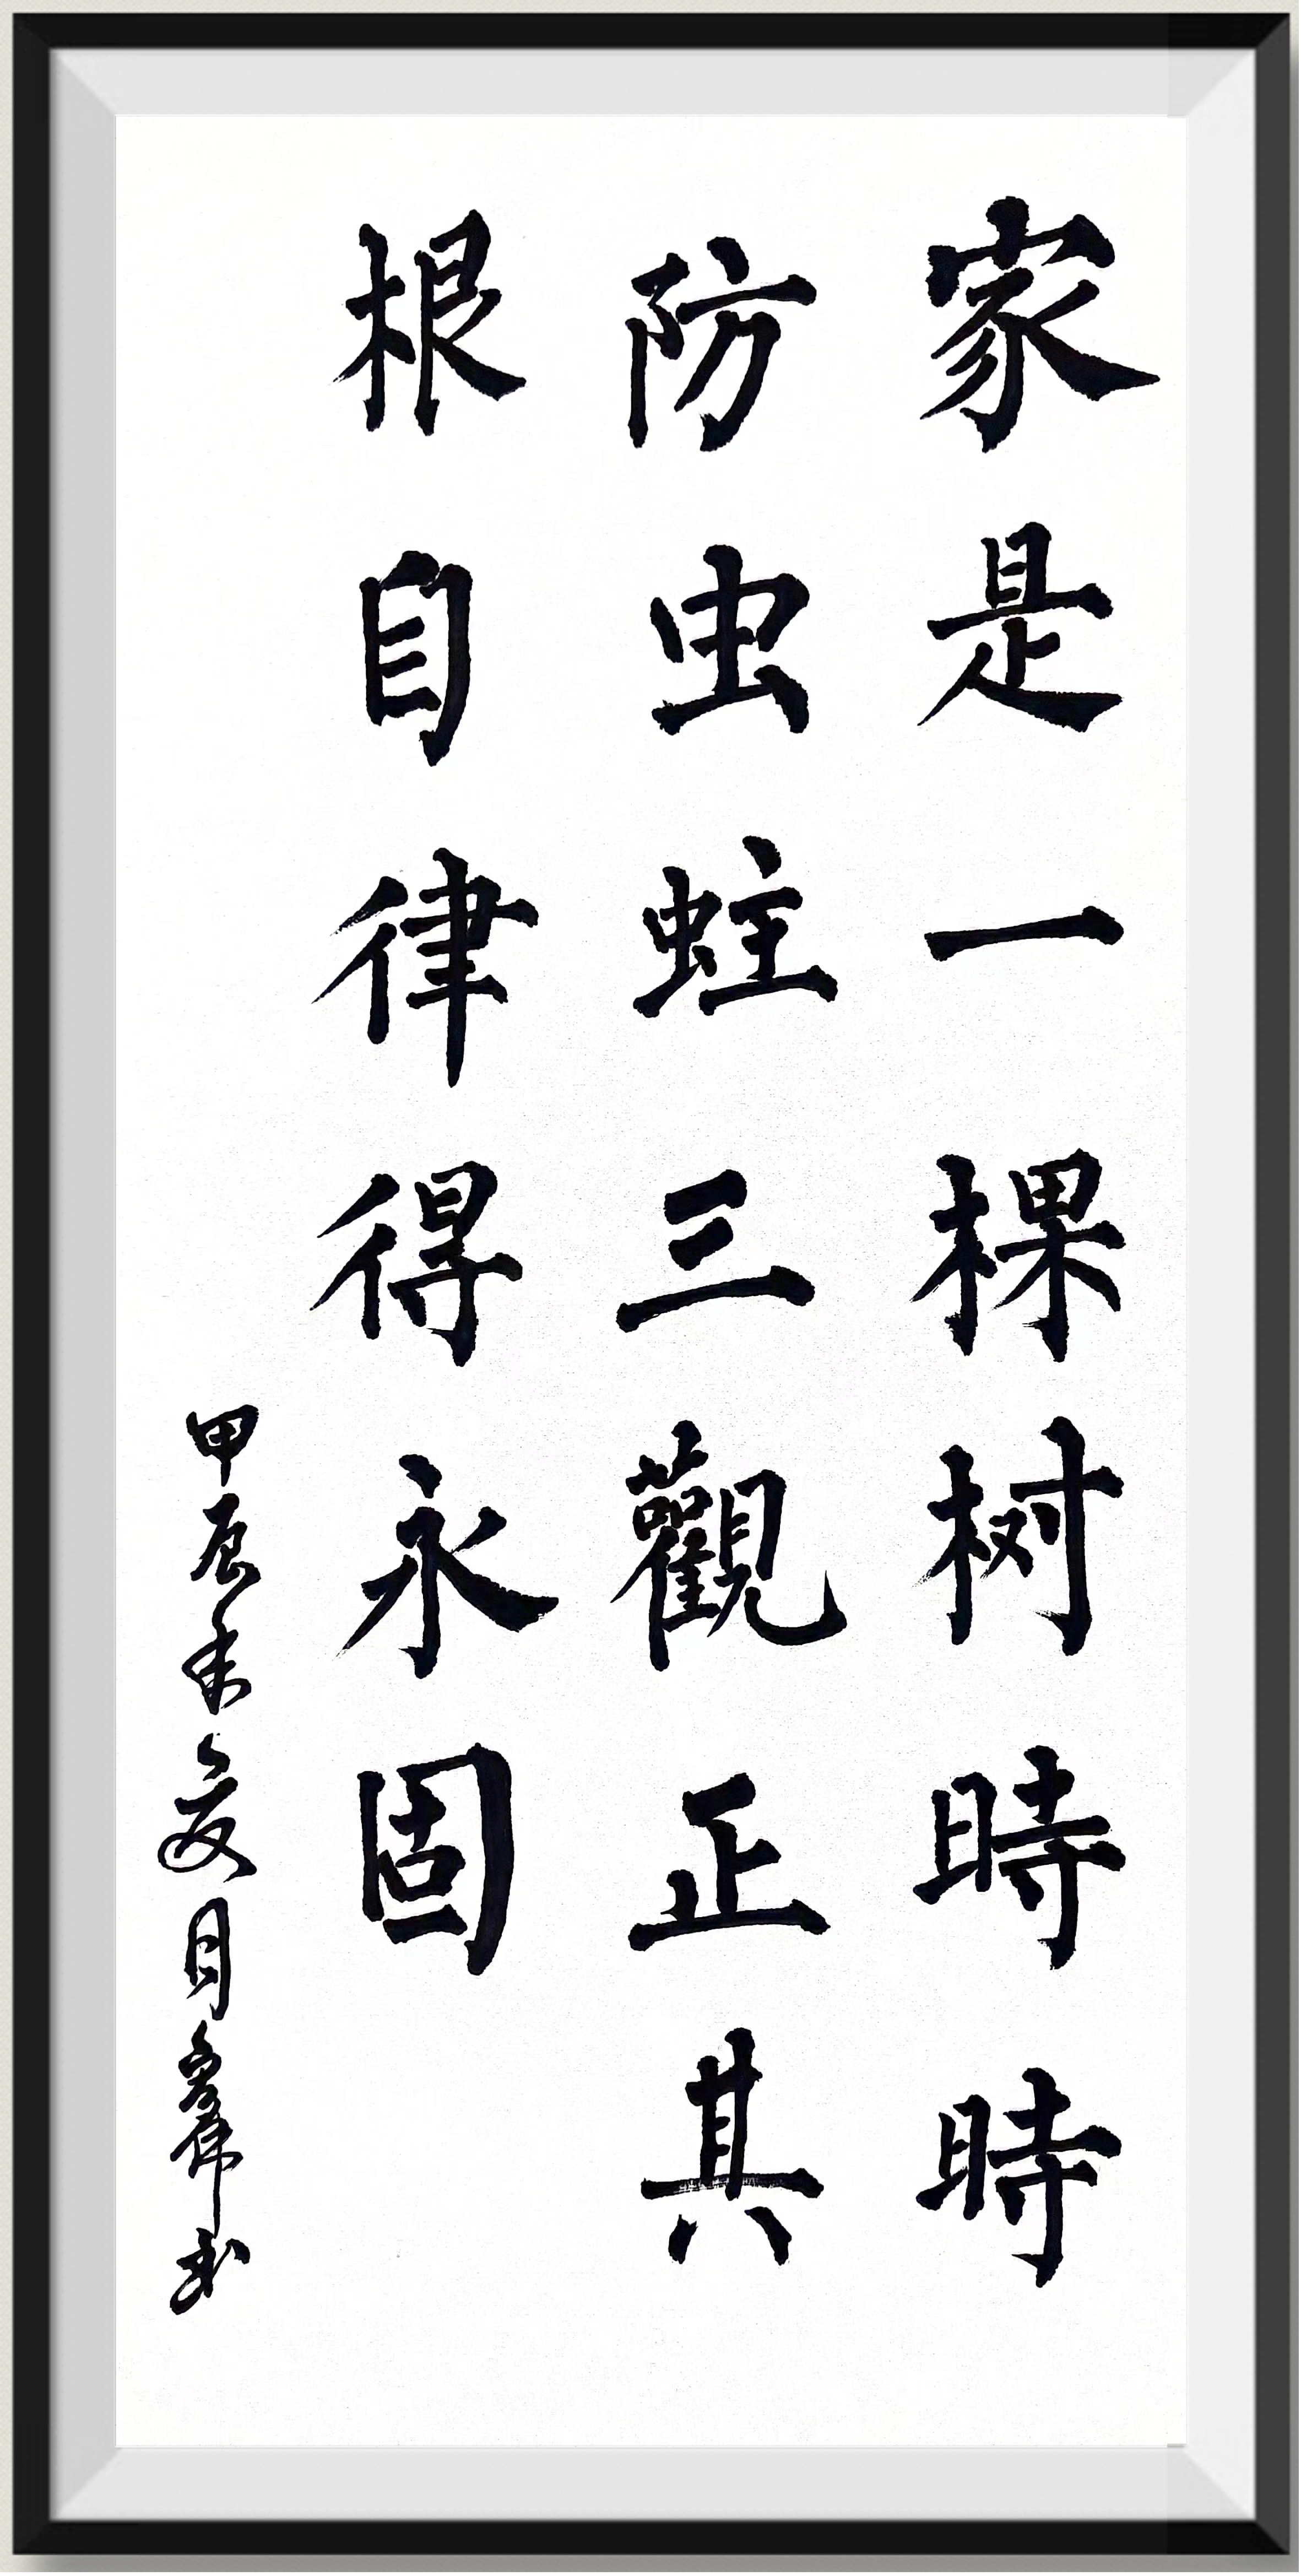 家是一棵树時時
防虫蛀三觀正其
根自律得永固
甲辰年夏月